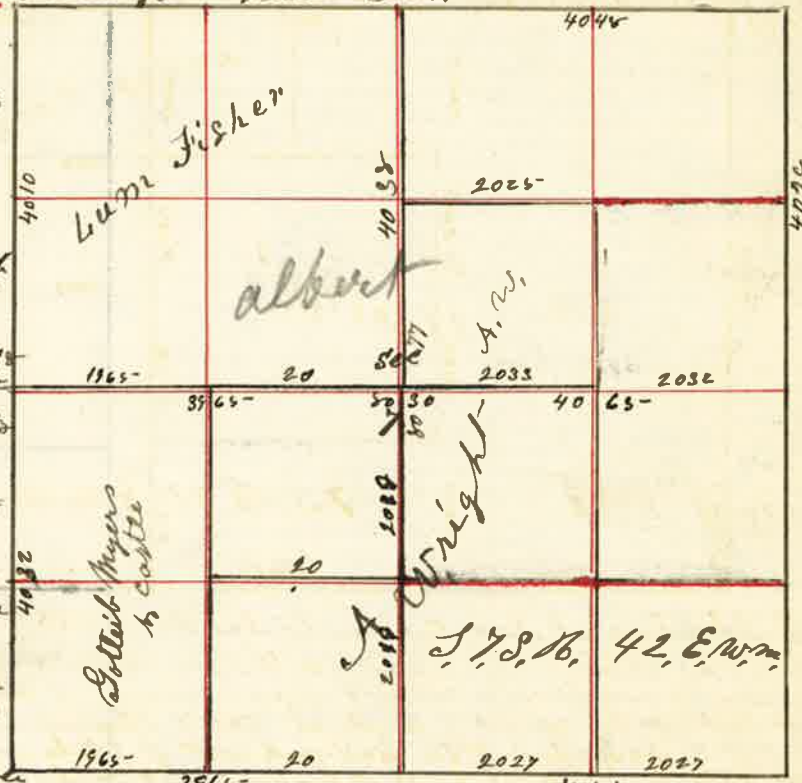 4048
Lum Fisher
4010
4038
2025
albert
A.W.
1965
20
2033
2032
3965
8030
40 65
80
2038
Wright
A
Gottleib Myers
to Castle
4032
20
2038
T, 7 S, R, 42, E, W, M,
1965
20
2027
2027